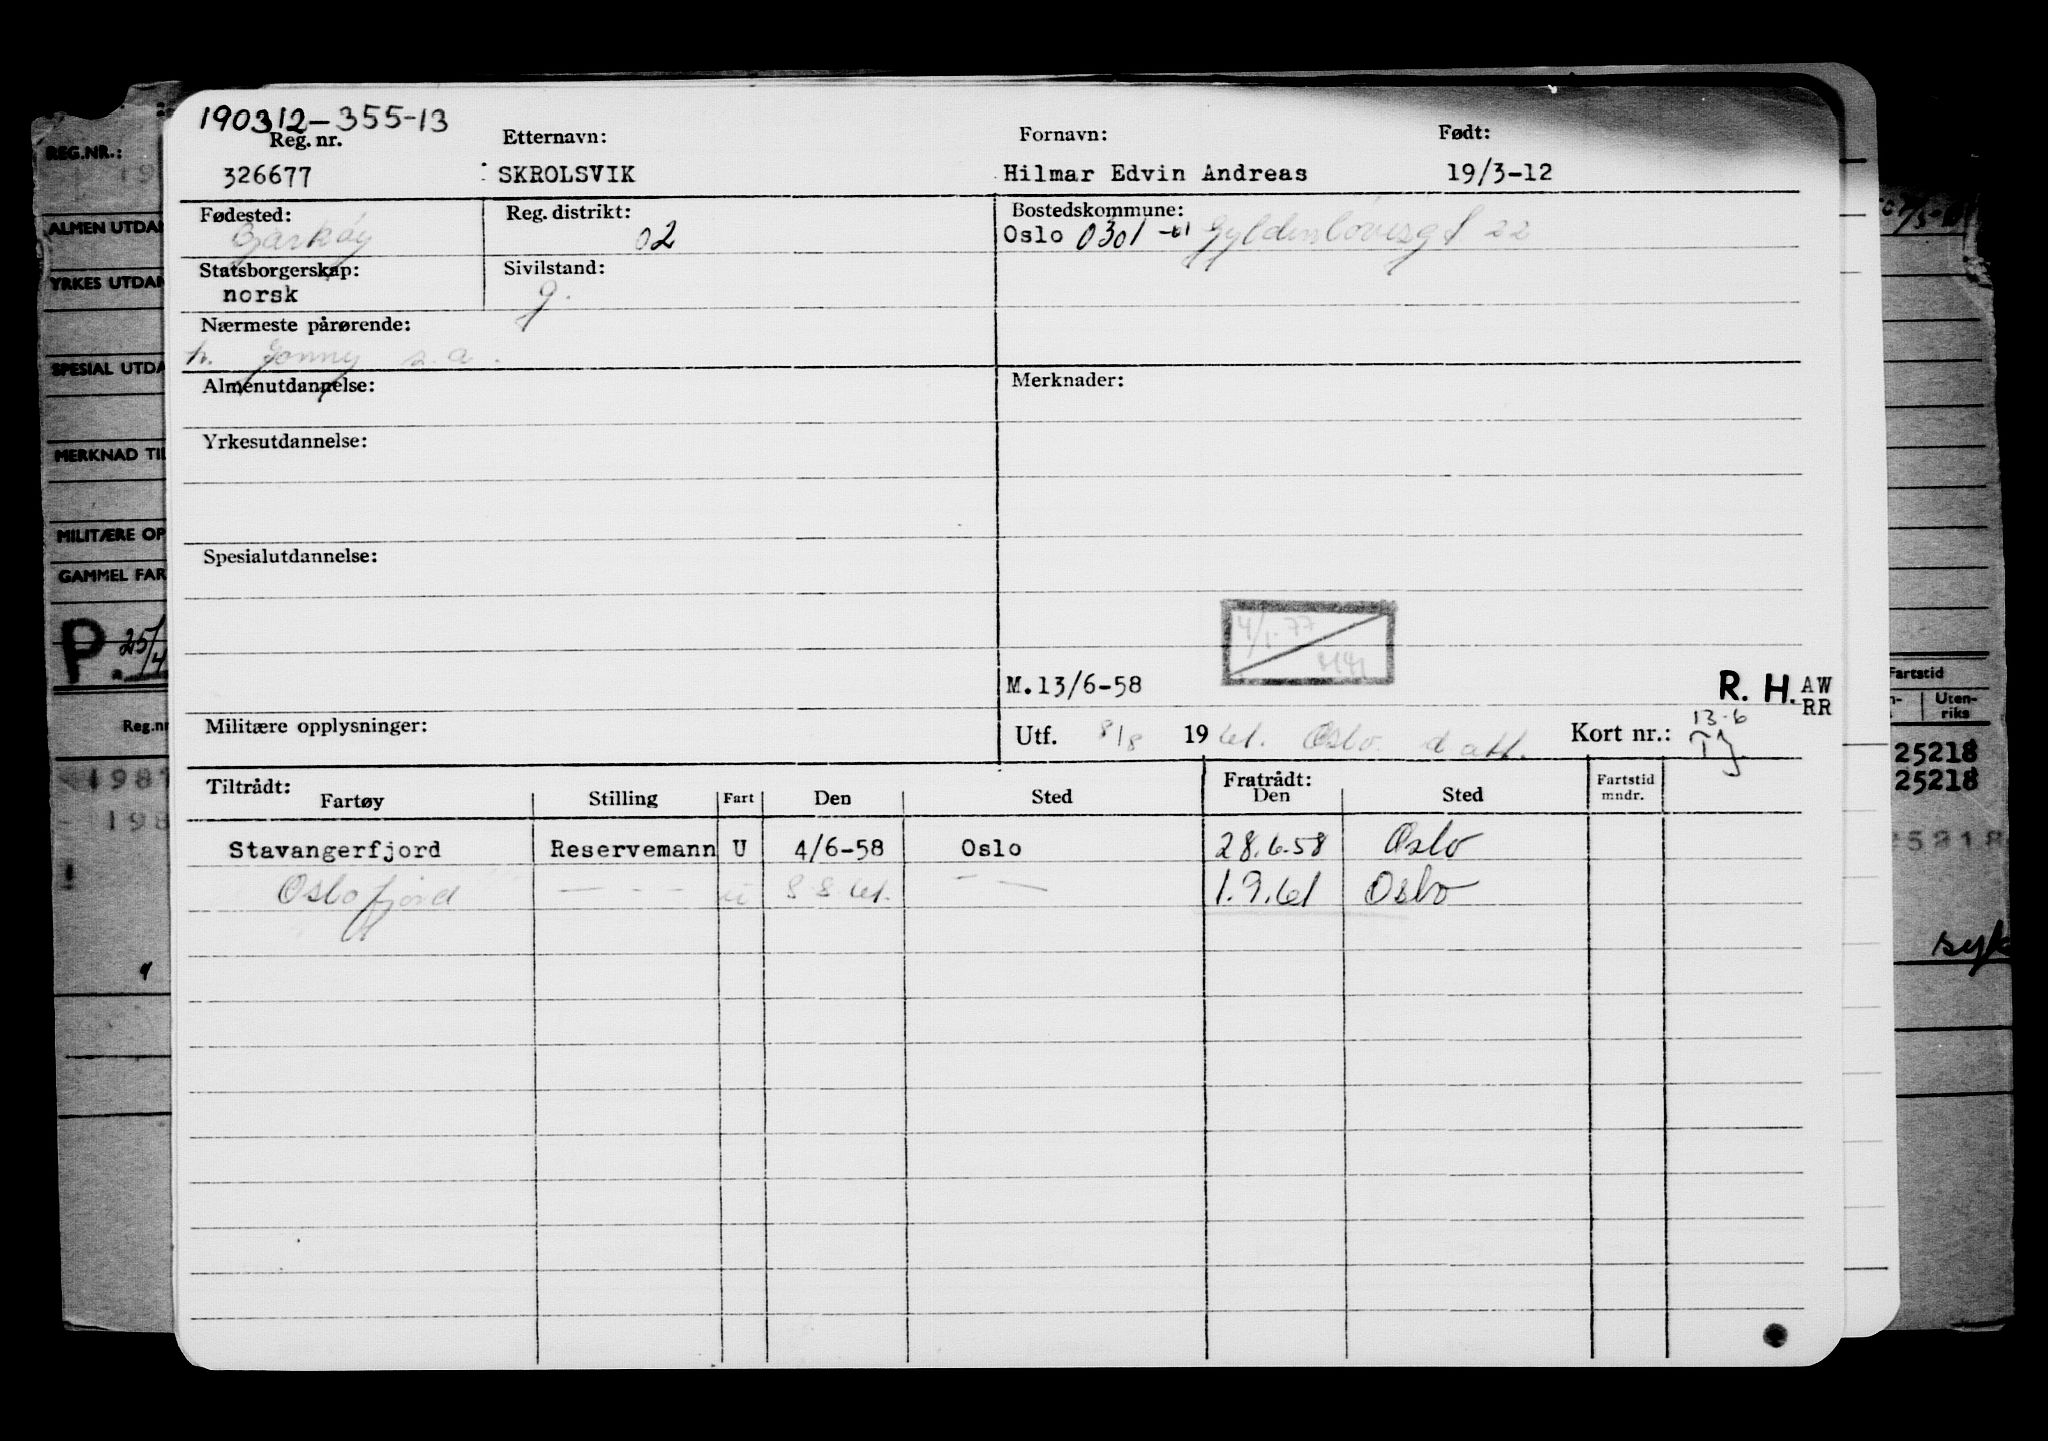 190312-355-13
Reg. nr. Etternavn: Fornavn: Født:
326677 SKROLSVIK Hilmar Edvin Andreas 19/3-12
Fødested: Reg. distrikt: Bostedskommune:
Bjarkøy 02 Oslo 0301 -61 Gyldenløvesgt 22
Statsborgerskap: Sivilstand:
norsk g.
Nærmeste pårørende:
h. Jonny s.a.
Almenutdannelse: Merknader:
Yrkesutdannelse:
Spesialutdannelse:
4/1-77
M.13/6-58 R. H. AW
RR
Militære opplysninger: Utf. 8/8 1961. Oslo d att. Kort nr.: 13-6
TJ
Tiltrådt: Fratrådt: Fartstid
Fartøy Stilling Fart Den Sted Den Sted mndr.
Stavangerfjord Reservemann U 4/6-58 Oslo 28.6.58 Oslo
Oslofjord — - - u 8 8 61. - — 1.9.61 Oslo
REG.NR.:
ALMEN UTDA
YRKES UTDA
SPESIAL UTDA
MERKNAD TIL
MILITÆRE OP
GAMMEL FAR
P 25/4
Reg.nr
Fartstid
Uten-
riks
25218
25218
25218
syk